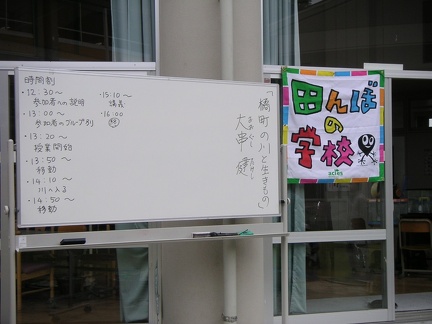 時間割
・12:30〜
参加者への説明
・13:00〜
参加者のグループ分け
・13:20〜
授業開始
・13:50〜
移動
・14:10〜
川へ入る
・14:50〜
移動
・15:10〜
講義
・16:00
終
「橘町の川と生きもの」
大串 健
おおぐし
田んぼ
の
学校